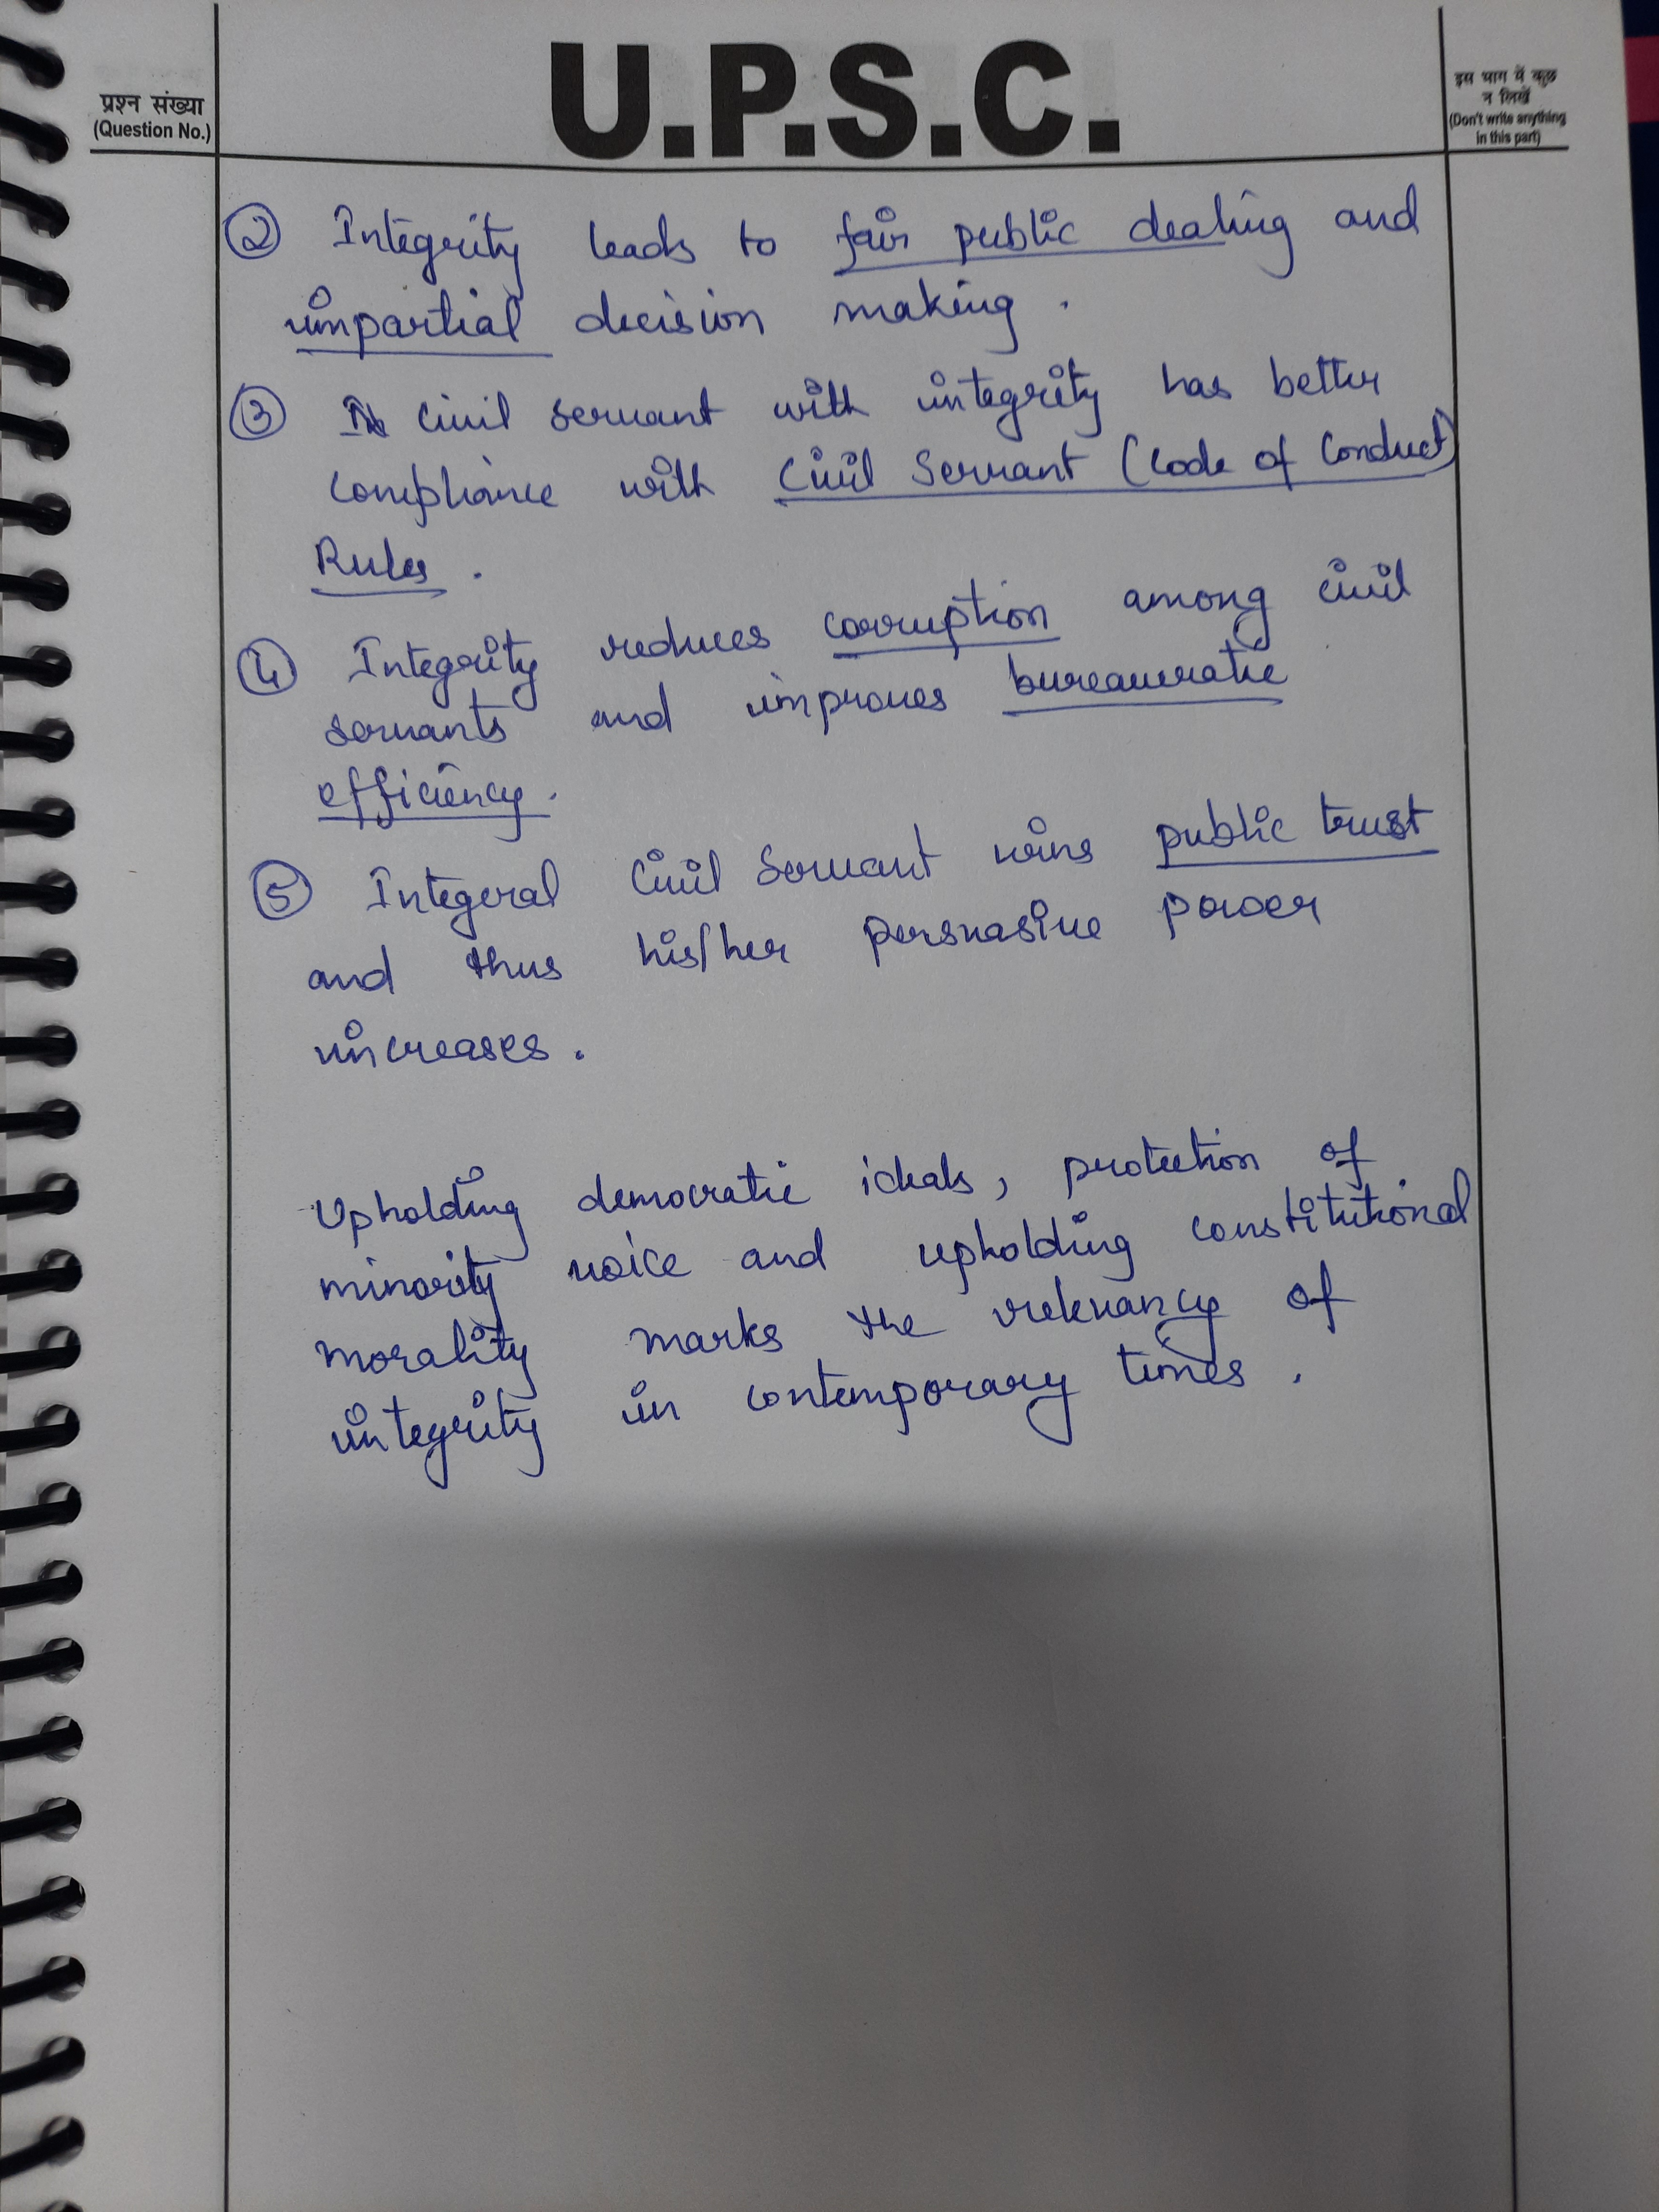 प्रश्न संख्या
(Question No.)
U.P.S.C.
इस भाग में कुछ
न लिखें
(Don't write anything
in this part)
② Integrity leads to fair public dealing and
impartial decision making.
③ A civil servant with integrity has better
compliance with Civil Servant (Code of Conduct)
Rules.
④ Integrity reduces corruption among civil
servants and improves bureaucratic
efficiency.
⑤ Integeral Civil Servant wins public trust
and thus his/her persuasive power
increases.
Upholding democratic ideals, protection of
minority voice and upholding constitutional
morality marks the relevancy of
integrity in contemporary times.